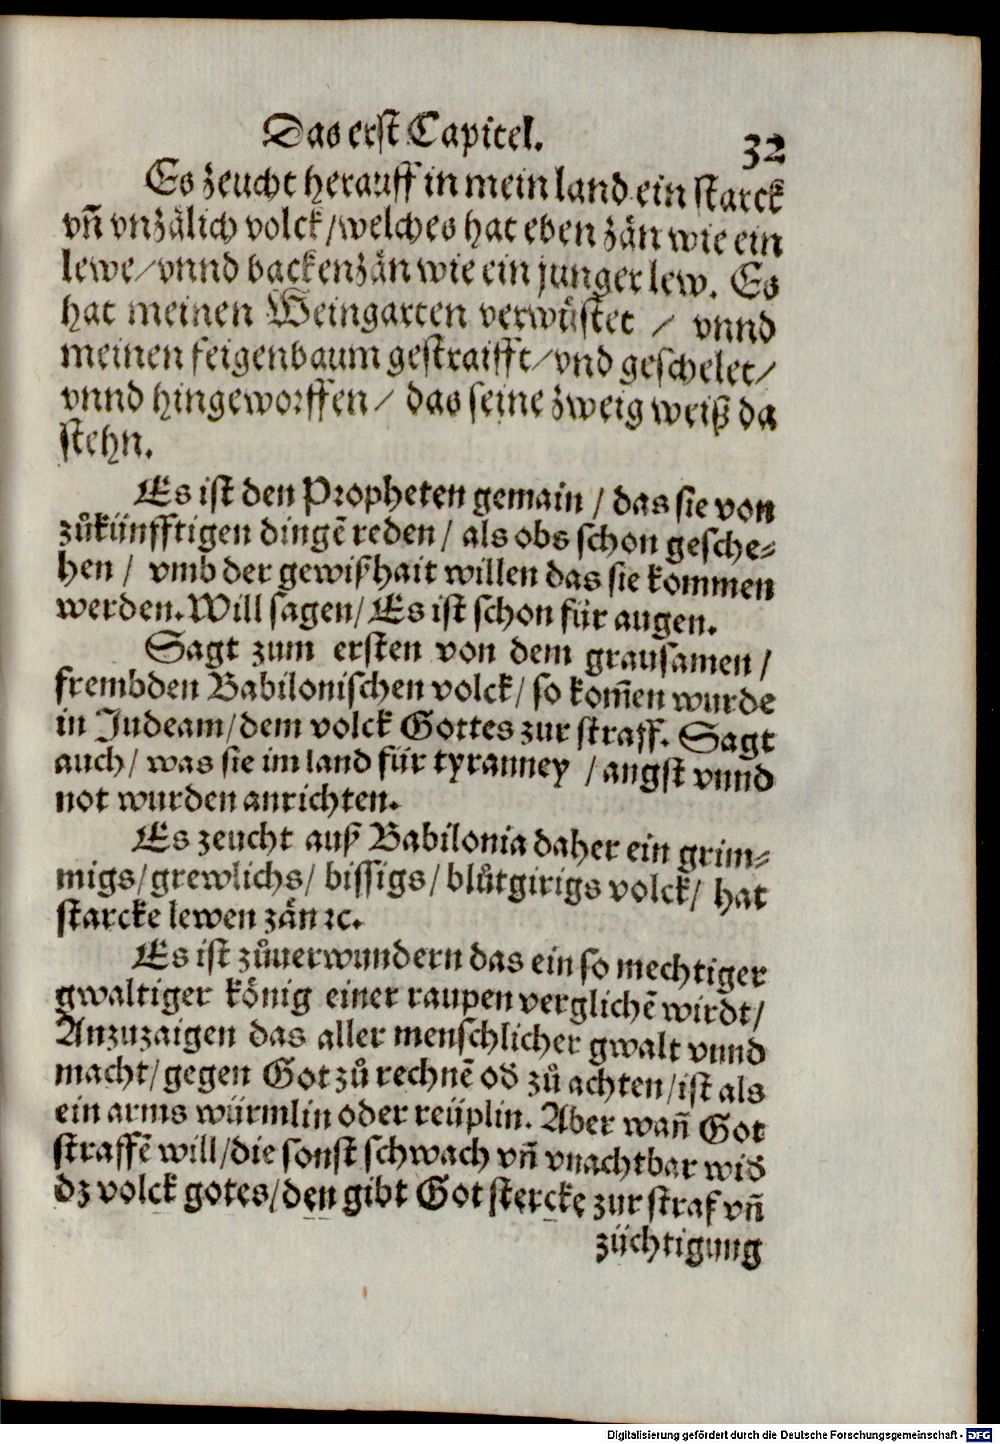 Das erst Capitel.
32
Es zeucht herauff in mein land ein starck
vn̄ vnzälich volck/welches hat eben zän wie ein
lewe/vnnd backenzän wie ein junger lew. Es
hat meinen Weingarten verwüstet / vnnd
meinen feigenbaum gestraifft/vnd geschelet/
vnnd hingeworffen/ das seine zweig weiß da
stehn.
Es ist den Propheten gemain / das sie von
zůkünfftigen dingē reden/ als obs schon gesche⸗
hen / vmb der gewißhait willen das sie kommen
werden. Will sagen/ Es ist schon für augen.
Sagt zum ersten von dem grausamen /
frembden Babilonischen volck/ so kom̄en wurde
in Judeam/dem volck Gottes zur straff. Sagt
auch/ was sie im land für tyranney /angst vnnd
not wurden anrichten.
Es zeucht auß Babilonia daher ein grim⸗
migs/grewlichs/ bissigs/ blůtgirigs volck/ hat
starcke lewen zän ꝛc.
Es ist zůuerwundern das ein so mechtiger
gwaltiger könig einer raupen verglichē wirdt/
Anzuzaigen das aller menschlicher gwalt vnnd
macht/gegen Got zů rechnē od̕ zů achten/ist als
ein arms würmlin oder reüplin. Aber wan̄ Got
straffē will/die sonst schwach vn̄ vnachtbar wid̕
dz volck gotes/den gibt Got stercke zur straf vn̄
züchtigung
Digitalisierung gefördert durch die Deutsche Forschungsgemeinschaft - DFG